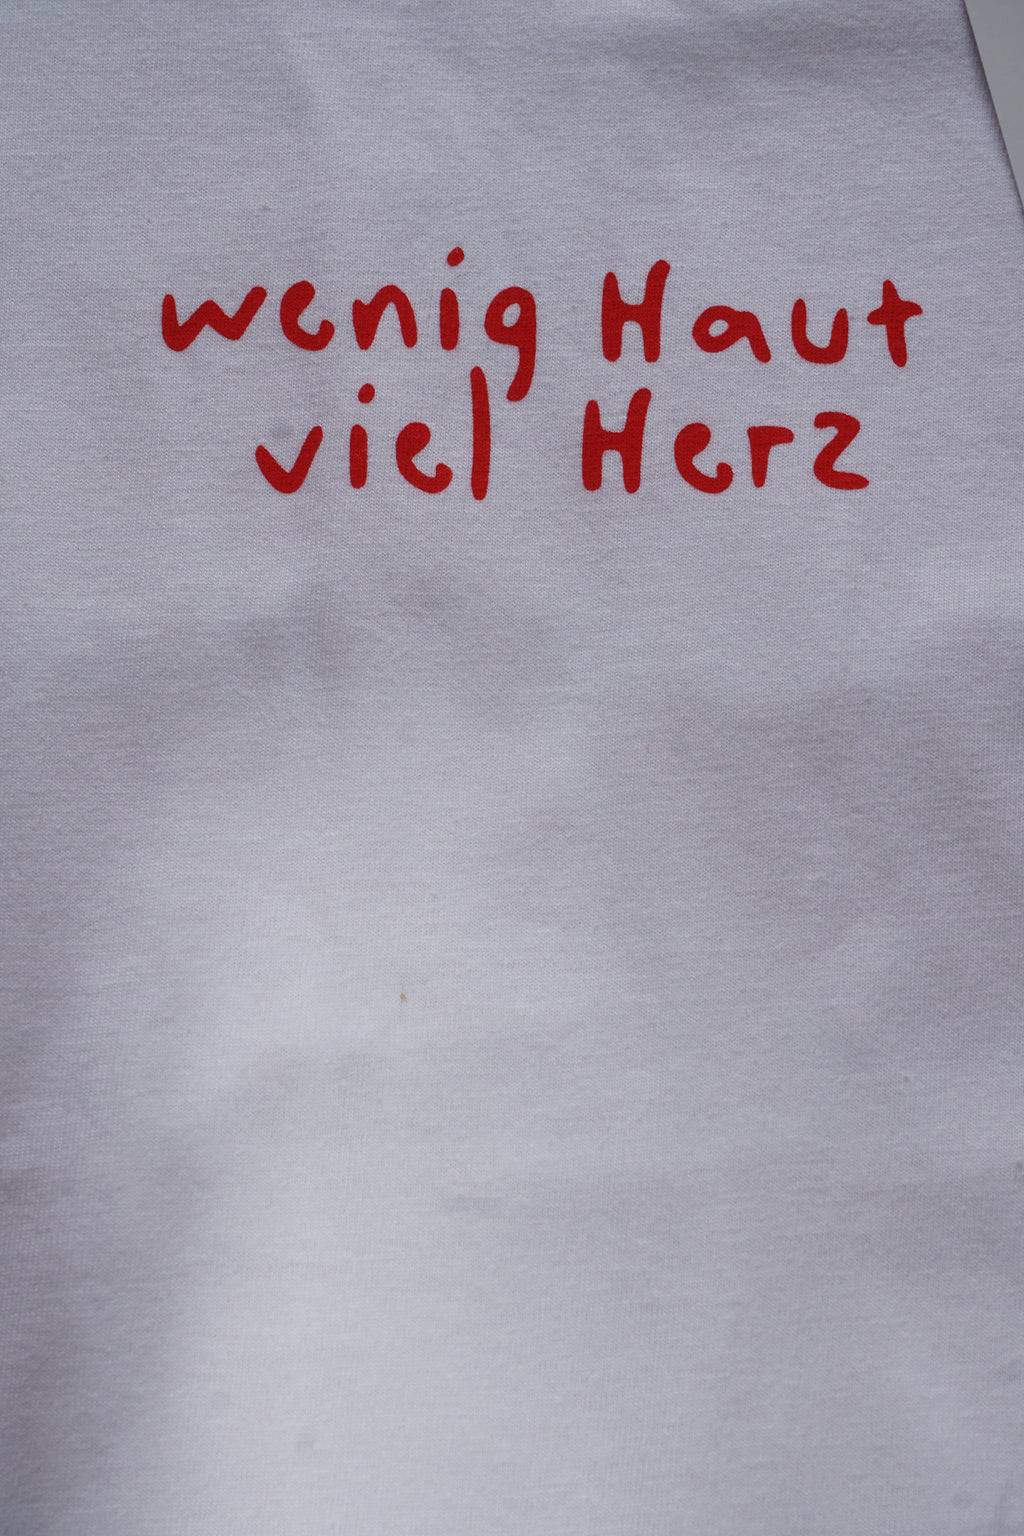 wenig Haut
viel Herz